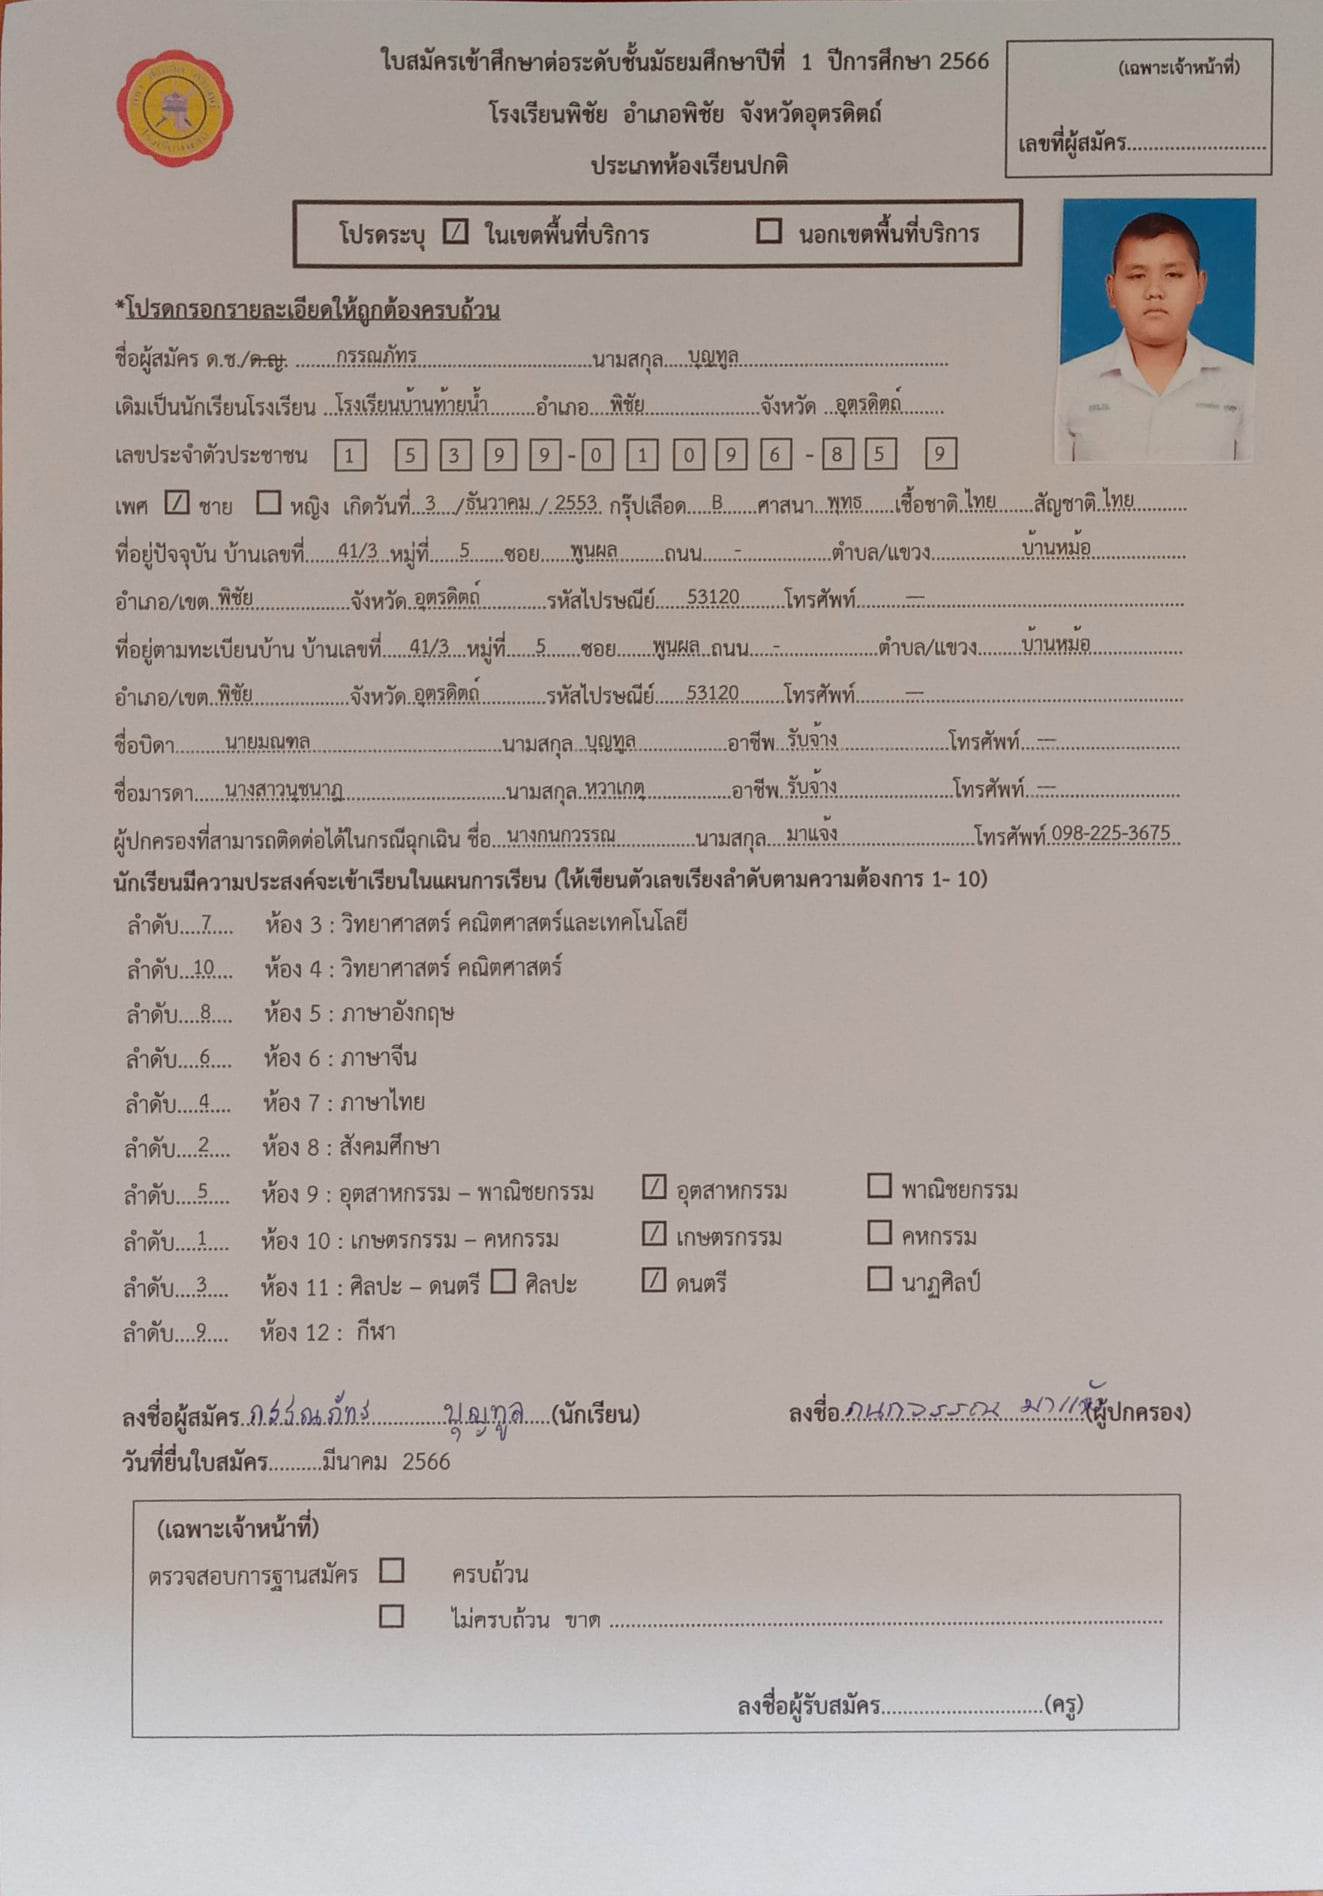 ใบสมัครเข้าศึกษาต่อระดับชั้นมัธยมศึกษาปีที่ 1 ปีการศึกษา 2566
(เฉพาะเจ้าหน้าที่)
โรงเรียนพิชัย อำเภอพิชัย จังหวัดอุตรดิตถ์
เลขที่ผู้สมัคร..........................
ประเภทห้องเรียนปกติ
โปรดระบุ ☑ ในเขตพื้นที่บริการ ☐ นอกเขตพื้นที่บริการ
*โปรดกรอกรายละเอียดให้ถูกต้องครบถ้วน
ชื่อผู้สมัคร ด.ช./ด.ญ. ........กรรณภัทร........นามสกุล.....บุญทูล........
เดิมเป็นนักเรียนโรงเรียน ..โรงเรียนบ้านท้ายน้ำ........อำเภอ....พิชัย........จังหวัด ..อุตรดิตถ์........
เลขประจำตัวประชาชน 1 5 3 9 9 - 0 1 0 9 6 - 8 5 9
เพศ ☑ ชาย ☐ หญิง เกิดวันที่..3.../ธันวาคม / 2553 กรุ๊ปเลือด.....B......ศาสนา...พุทธ......เชื้อชาติ.ไทย.......สัญชาติ.ไทย..........
ที่อยู่ปัจจุบัน บ้านเลขที่......41/3..หมู่ที่.....5......ซอย.....พูนผล........ถนน......-........ตำบล/แขวง........บ้านหม้อ........
อำเภอ/เขต..พิชัย........จังหวัด..อุตรดิตถ์........รหัสไปรษณีย์......53120........โทรศัพท์........—........
ที่อยู่ตามทะเบียนบ้าน บ้านเลขที่.....41/3...หมู่ที่.....5......ซอย.......พูนผล..ถนน....-........ตำบล/แขวง........บ้านหม้อ........
อำเภอ/เขต..พิชัย........จังหวัด..อุตรดิตถ์........รหัสไปรษณีย์......53120........โทรศัพท์........—........
ชื่อบิดา.........นายมณฑล........นามสกุล..บุญทูล........อาชีพ..รับจ้าง........โทรศัพท์...—........
ชื่อมารดา......นางสาวนุชนาฏ........นามสกุล.หวาเกตุ........อาชีพ..รับจ้าง........โทรศัพท์...—........
ผู้ปกครองที่สามารถติดต่อได้ในกรณีฉุกเฉิน ชื่อ...นางกนกวรรณ........นามสกุล....มาแจ้ง........โทรศัพท์.098-225-3675..
นักเรียนมีความประสงค์จะเข้าเรียนในแผนการเรียน (ให้เขียนตัวเลขเรียงลำดับตามความต้องการ 1- 10)
ลำดับ....7..... ห้อง 3 : วิทยาศาสตร์ คณิตศาสตร์และเทคโนโลยี
ลำดับ...10.... ห้อง 4 : วิทยาศาสตร์ คณิตศาสตร์
ลำดับ....8..... ห้อง 5 : ภาษาอังกฤษ
ลำดับ....6..... ห้อง 6 : ภาษาจีน
ลำดับ....4..... ห้อง 7 : ภาษาไทย
ลำดับ....2..... ห้อง 8 : สังคมศึกษา
ลำดับ....5..... ห้อง 9 : อุตสาหกรรม – พาณิชยกรรม ☑ อุตสาหกรรม ☐ พาณิชยกรรม
ลำดับ....1..... ห้อง 10 : เกษตรกรรม – คหกรรม ☑ เกษตรกรรม ☐ คหกรรม
ลำดับ....3..... ห้อง 11 : ศิลปะ – ดนตรี ☐ ศิลปะ ☑ ดนตรี ☐ นาฏศิลป์
ลำดับ....9..... ห้อง 12 : กีฬา
ลงชื่อผู้สมัคร.กรรณภัทร........บุญทูล.....(นักเรียน) ลงชื่อ.กนกวรรณ มาแจ้ง(ผู้ปกครอง)
วันที่ยื่นใบสมัคร..........มีนาคม 2566
(เฉพาะเจ้าหน้าที่)
ตรวจสอบการฐานสมัคร ☐ ครบถ้วน
☐ ไม่ครบถ้วน ขาด ........................................
ลงชื่อผู้รับสมัคร..............................(ครู)